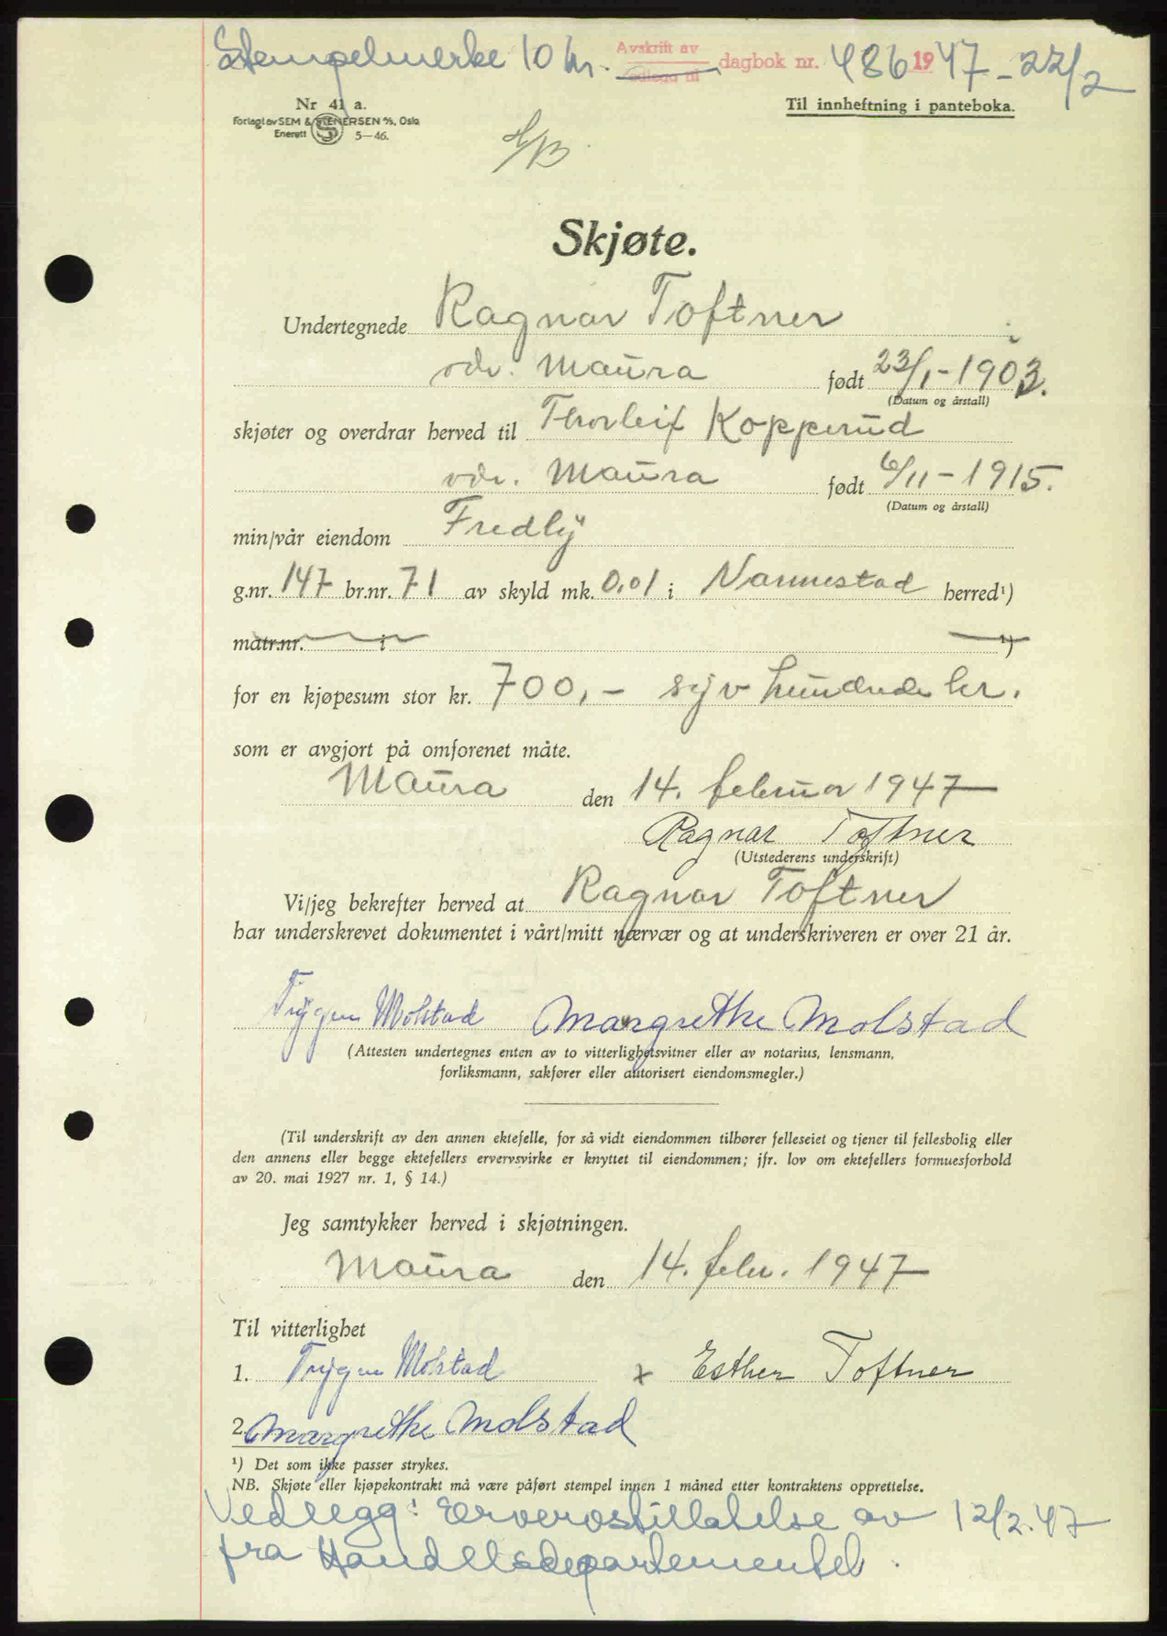 Stempelmerke 10 kr. Avskrift av dagbok nr. 486 1947 - 22/2
Nr 41 a.
Forlagt av SEM & STENERSEN A/S, Oslo
Enerett S 5—46.
Til innheftning i panteboka.
Skjøte.
Undertegnede Ragnar Toftner
adr. Maura født 23/1-1903.
(Datum og årstall)
skjøter og overdrar herved til Thorleif Kopperud
adr. Maura født 6/11-1915.
(Datum og årstall)
min/vår eiendom Fredly
g.nr. 147 br.nr. 71 av skyld mk. 0,01 i Nannestad herred¹)
matr.nr. i ¹)
for en kjøpesum stor kr. 700,- syv hundrede kr.
som er avgjort på omforenet måte.
Maura den 14. februar 1947
Ragnar Toftner
(Utstederens underskrift)
Vi/jeg bekrefter herved at Ragnar Toftner
har underskrevet dokumentet i vårt/mitt nærvær og at underskriveren er over 21 år.
Trygve Molstad Margrethe Molstad
(Attesten undertegnes enten av to vitterlighetsvitner eller av notarius, lensmann,
forliksmann, sakfører eller autorisert eiendomsmegler.)
(Til underskrift av den annen ektefelle, for så vidt eiendommen tilhører felleseiet og tjener til fellesbolig eller
den annens eller begge ektefellers ervervsvirke er knyttet til eiendommen; jfr. lov om ektefellers formuesforhold
av 20. mai 1927 nr. 1, § 14.)
Jeg samtykker herved i skjøtningen.
Maura den 14. febr. 1947
Til vitterlighet
1. Trygve Molstad x Esther Toftner
2. Margrethe Molstad
¹) Det som ikke passer strykes.
NB. Skjøte eller kjøpekontrakt må være påført stempel innen 1 måned etter kontraktens opprettelse.
Vedlegg: Ervervstillatelse av 12/2.47
fra Handelsdepartementet.